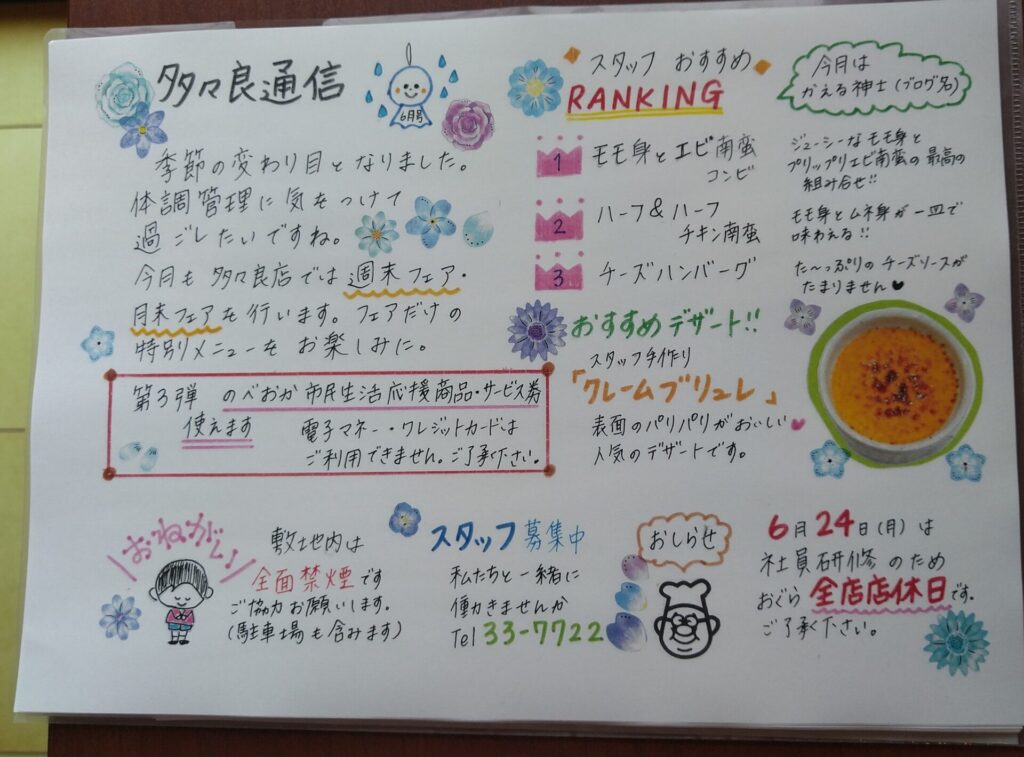 多々良通信
6月号
季節の変わり目となりました。
体調管理に気をつけて
過ごしたいですね。
今月も多々良店では週末フェア・
月末フェアを行います。フェアだけの
特別メニューをお楽しみに。
第3弾 のべおか市民生活応援商品・サービス券
使えます 電子マネー・クレジットカードは
ご利用できません。ご了承ください。
スタッフ おすすめ
RANKING
今月は
かえる紳士(ブログ名)
1 モモ身とエビ南蛮
コンビ
ジューシーなモモ身と
プリップリエビ南蛮の最高の
組み合せ!!
2 ハーフ&ハーフ
チキン南蛮
モモ身とムネ身が一皿で
味わえる!!
3 チーズハンバーグ
た〜っぷりのチーズソースが
たまりません♥
おすすめデザート!!
スタッフ手作り
「クレームブリュレ」
表面のパリパリがおいしい♥
人気のデザートです。
おねがい
敷地内は
全面禁煙です
ご協力お願いします。
(駐車場も含みます)
スタッフ募集中
私たちと一緒に
働かきませんか
Tel 33-7722
おしらせ
6月24日(月)は
社員研修のため
おぐら全店店休日です.
ご了承下さい。